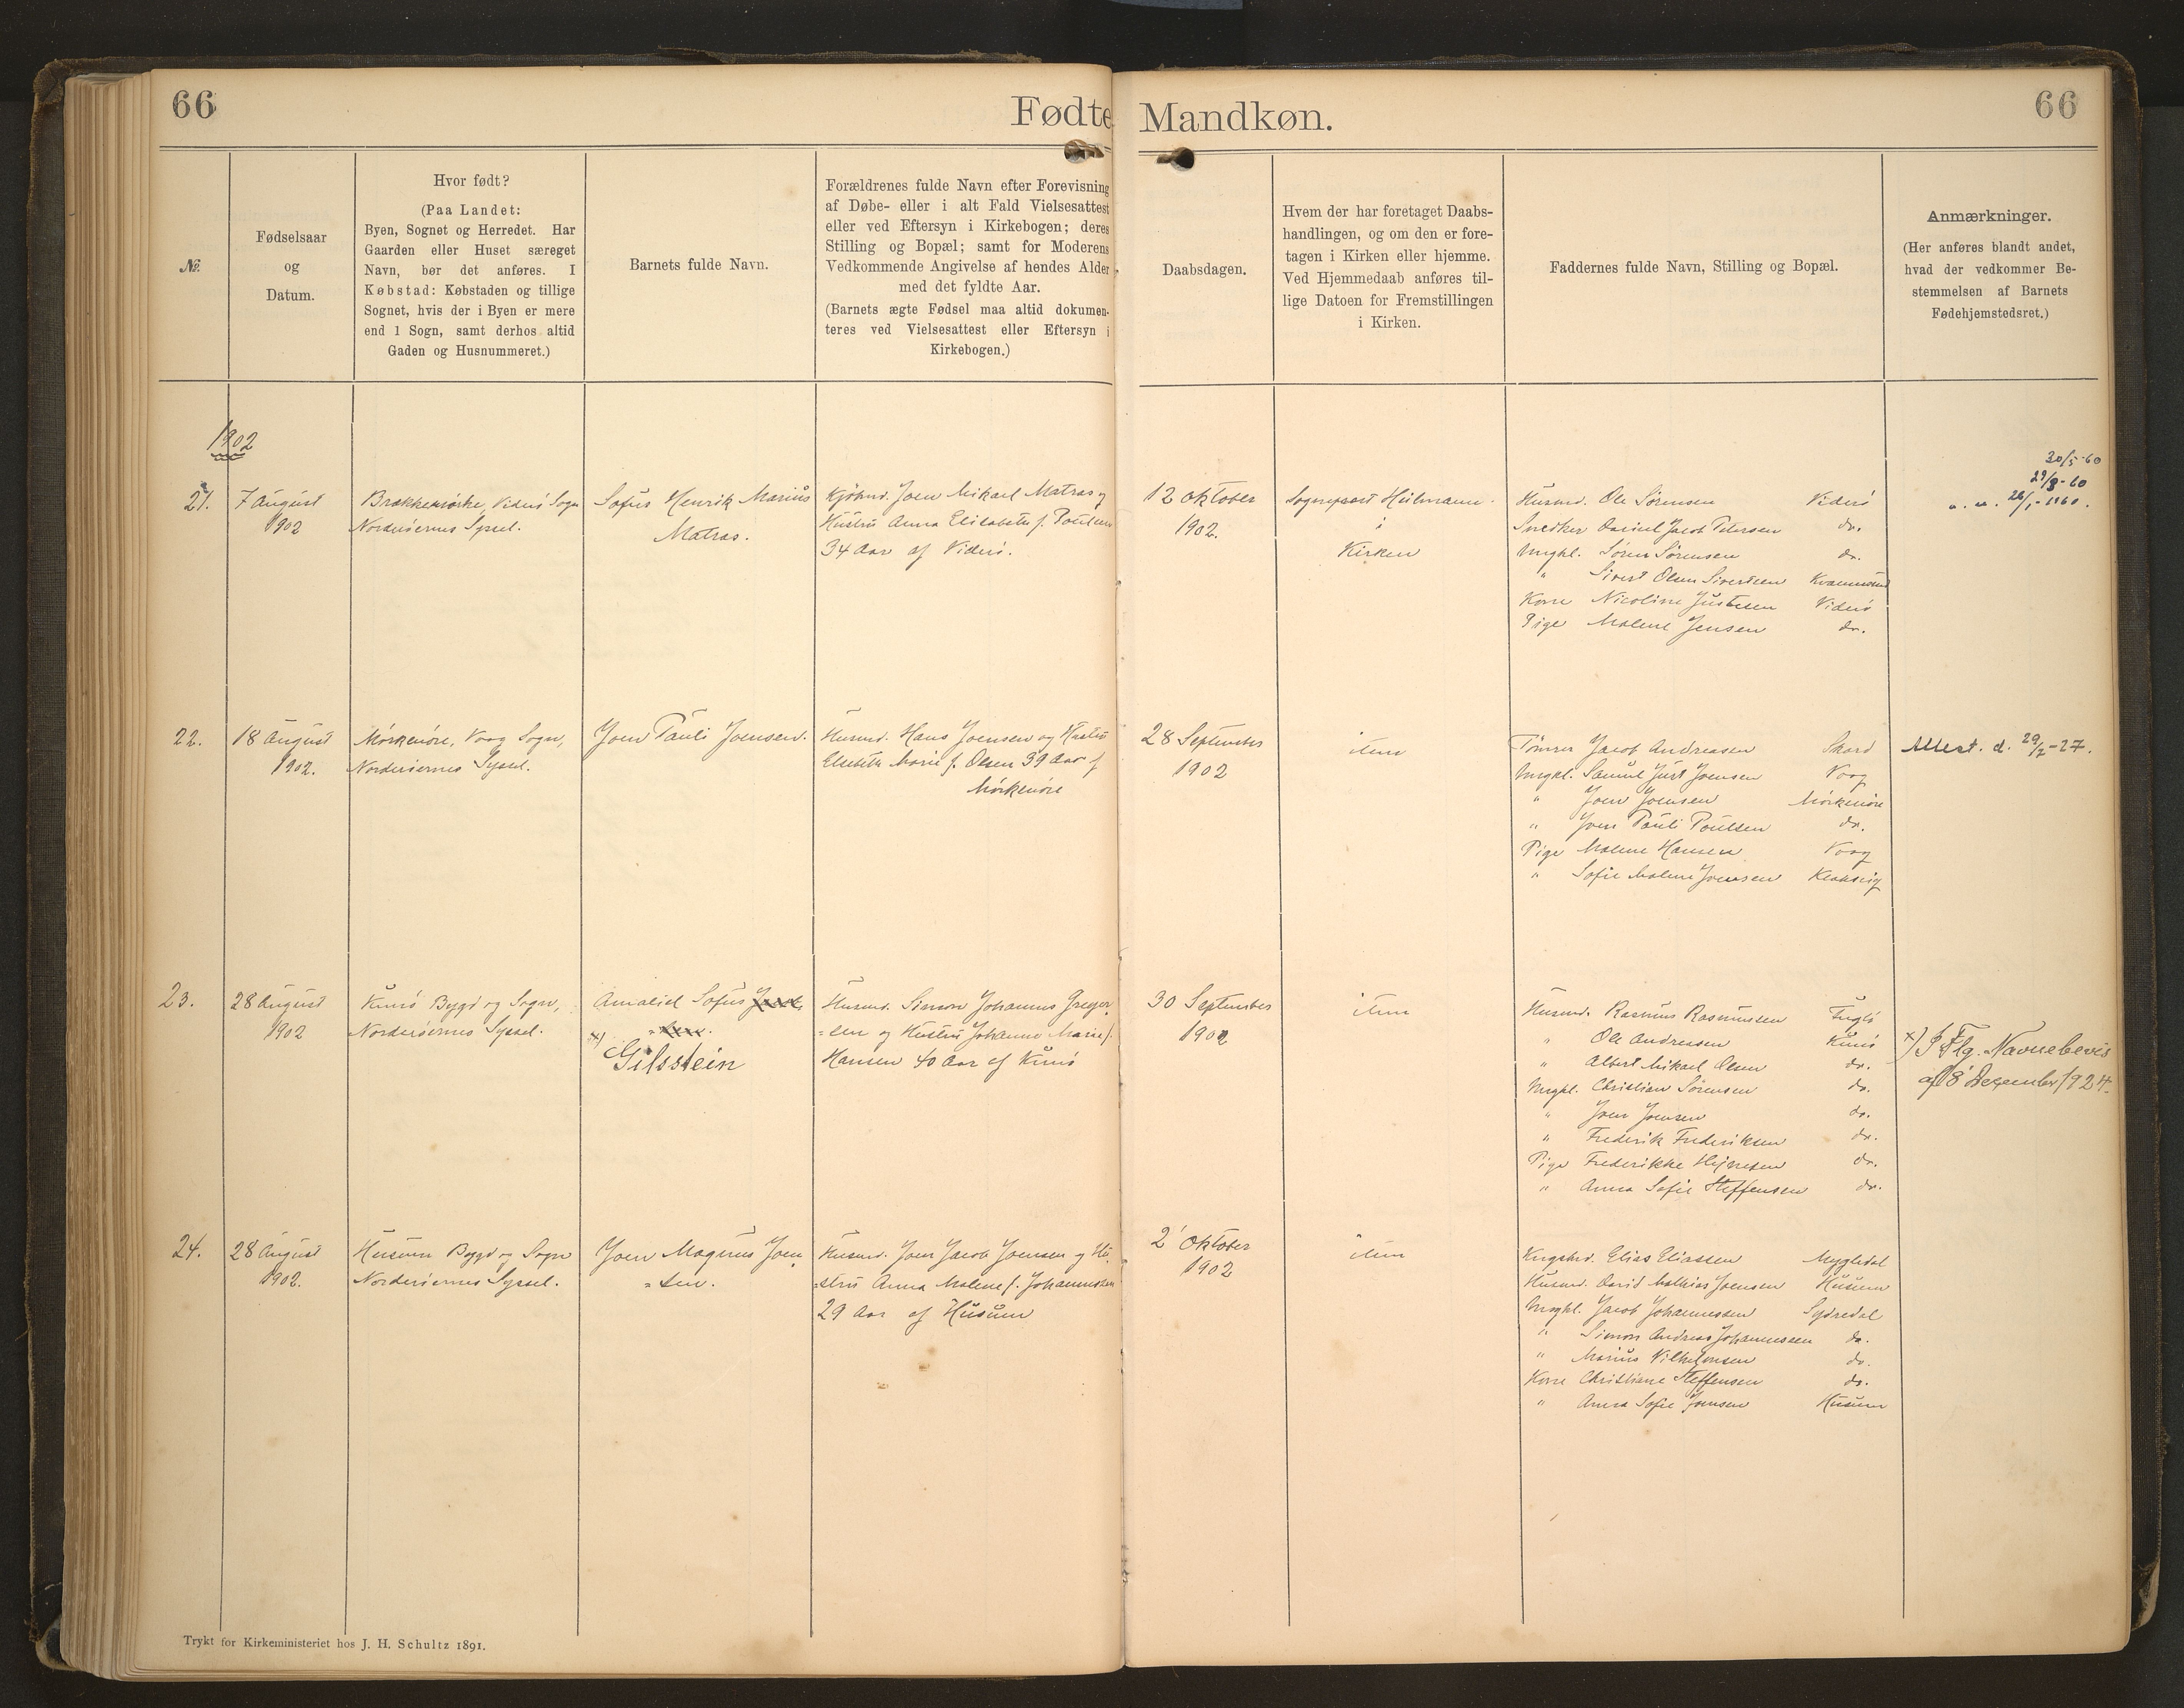 66
Fødte
Mandkøn.
66
№.
Fødselsaar
og
Datum.
Hvor født?
(Paa Landet:
Byen, Sognet og Herredet. Har
Gaarden eller Huset særeget
Navn, bør det anføres. I
Købstad: Købstaden og tillige
Sognet, hvis der i Byen er mere
end 1 Sogn, samt derhos altid
Gaden og Husnummeret.)
Barnets fulde Navn.
Forældrenes fulde Navn efter Forevisning
af Døbe- eller i alt Fald Vielsesattest
eller ved Eftersyn i Kirkebogen; deres
Stilling og Bopæl; samt for Moderens
Vedkommende Angivelse af hendes Alder
med det fyldte Aar.
(Barnets ægte Fødsel maa altid dokumen-
teres ved Vielsesattest eller Eftersyn i
Kirkebogen.)
Daabsdagen.
Hvem der har foretaget Daabs-
handlingen, og om den er fore-
tagen i Kirken eller hjemme.
Ved Hjemmedaab anføres til-
lige Datoen for Fremstillingen
i Kirken.
Faddernes fulde Navn, Stilling og Bopæl.
Anmærkninger.
(Her anføres blandt andet,
hvad der vedkommer Be-
stemmelsen af Barnets
Fødehjemstedsret.)
1902
21.
7 August
1902
Viderø Sogn
Norderøernes Syssel.
Sofus Henrik Marius
Matras.
Kjøbmd. Joen Mikael Matras og
Hustru Anna Elisabeth f. Poulsen
34 Aar af Viderø.
12 Oktober
1902.
Sognepræst Heilmann
i
Kirken
Husmd. Ole Sørensen Viderø
Snedker Daniel Jacob Petersen do.
Ungkl. Søren Sørensen do.
" Sivert Olsen Sivertsen Kvannesund
Kone Nicoline Justesen Viderø
Pige Malene Jensen do.
30/5-60
29/8-60
22.
18 August
1902.
Mørkenøre, Vaag Sogn,
Norderøernes Syssel.
Joen Pauli Joensen.
Husmd. Hans Joensen og Hustru
Elsebeth Marie f. Olsen 39 Aar af
Mørkenøre
28 September
1902
item
Tømrer Jacob Andreasen Skard
Ungkl. Samuel Just Joensen Vaag
" Joen Joensen Mørkenøre
" Joen Pauli Poulsen do.
Pige Malene Hansen Vaag
" Sofie Malene Joensen Klaksvig
Attest. d. 29/7-27.
23.
28 August
1902
Kunø Bygd og Sogn,
Norderøernes Syssel.
Annalied Sofus
x)
Gilsstein
Husmd. Simon Johannes Greger-
=sen og Hustru Johanne Marie f.
Hansen 40 Aar af Kunø
30 September
1902
item
Husmd. Rasmus Rasmussen Fuglø
" Ole Andreasen Kunø
" Albert Mikael Olsen do.
Ungkl. Christian Sørensen do.
" Joen Joensen do.
" Frederik Frederiksen do.
Pige Frederikke Hejnesen do.
" Anna Sofie Steffensen do.
x) I Flg. Navnebevis
af 8' December 1924.
24.
28 August
1902.
Husum Bygd og Sogn
Norderøernes Syssel.
Joen Magnus Joen-
=sen.
Husmd. Joen Jacob Joensen og Hu-
=stru Anna Malene f. Johannesen
29 Aar af Husum
2' Oktober
1902
item
Kngsbd. Elias Eliassen Mygledal
Husmd. David Mathias Joensen Husum
Ungkl. Jacob Johannessen Sydredal
" Simon Andreas Johannessen do.
" Marius Vilhelmsen do.
Kone Christiane Steffensen do.
" Anna Sofie Joensen Husum
Trykt for Kirkeministeriet hos J. H. Schultz 1891.